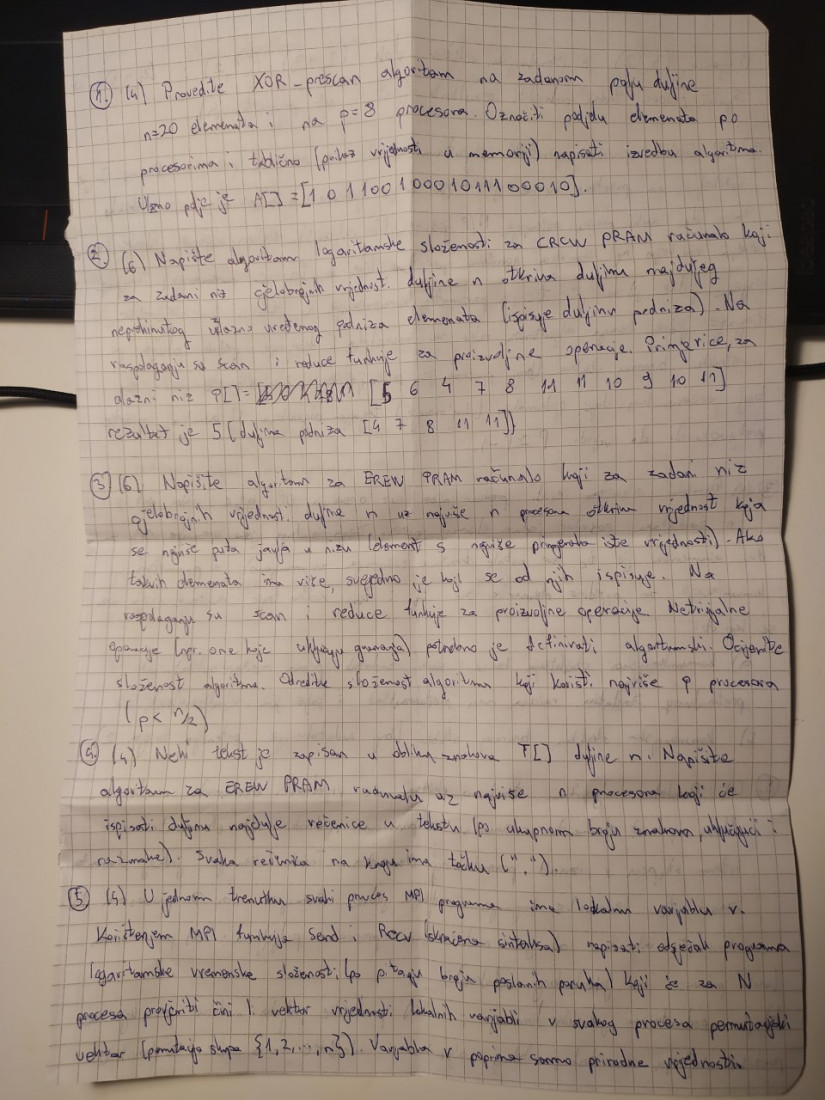 1. (4) Provedite XOR-prescan algoritam na zadanom polju duljine
n=20 elemenata i na p=8 procesora. Označiti podjelu elemenata po
procesorima i tablično (prikaz vrijednosti u memoriji) napisati izvedbu algoritma.
Ulazno polje je A[] = [1 0 1 1 0 0 1 0 0 0 1 0 1 1 1 0 0 0 1 0].
2. (6) Napišite algoritam logaritamske složenosti za CRCW PRAM računalo koji
za zadani niz cjelobrojnih vrijednosti duljine n otkriva duljinu najduljeg
neprekinutog uzlazno uređenog podniza elemenata (ispisuje duljinu podniza). Na
raspolaganju su scan i reduce funkcije za proizvoljne operacije. Primjerice, za
ulazni niz P[]= [5 6 4 7 8 11 11 10 9 10 11]
rezultat je 5 (duljina podniza [4 7 8 11 11])
3. (6) Napišite algoritam za EREW PRAM računalo koji za zadani niz
cjelobrojnih vrijednosti duljine n uz najviše n procesora otkriva vrijednost koja
se najviše puta javlja u nizu (element s najviše primjeraka iste vrijednosti). Ako
takvih elemenata ima više, svejedno je koji se od njih ispisuje. Na
raspolaganju su scan i reduce funkcije za proizvoljne operacije. Netrivijalne
operacije (npr. one koje uključuju grananja) potrebno je definirati algoritamski. Ocijenite
složenost algoritma. Odredite složenost algoritma koji koristi najviše p procesora
(p < n/2)
4. (4) Neki tekst je zapisan u obliku znakova T[] duljine n. Napišite
algoritam za EREW PRAM računalo uz najviše n procesora koji će
ispisati duljinu najdulje rečenice u tekstu (po ukupnom broju znakova, uključujući i
razmake). Svaka rečenica na kraju ima točku (".").
5. (4) U jednom trenutku svaki proces MPI programa ima lokalnu varijablu v.
Korištenjem MPI funkcija Send i Recv (skraćena sintaksa) napisati odsječak programa
logaritamske vremenske složenosti (po pitanju broja poslanih poruka) koji će za N
procesa provjeriti čini li vektor vrijednosti lokalnih varijabli v svakog procesa permutacijski
vektor (permutacija skupa {1,2,...,n}). Varijabla v poprima samo prirodne vrijednosti.